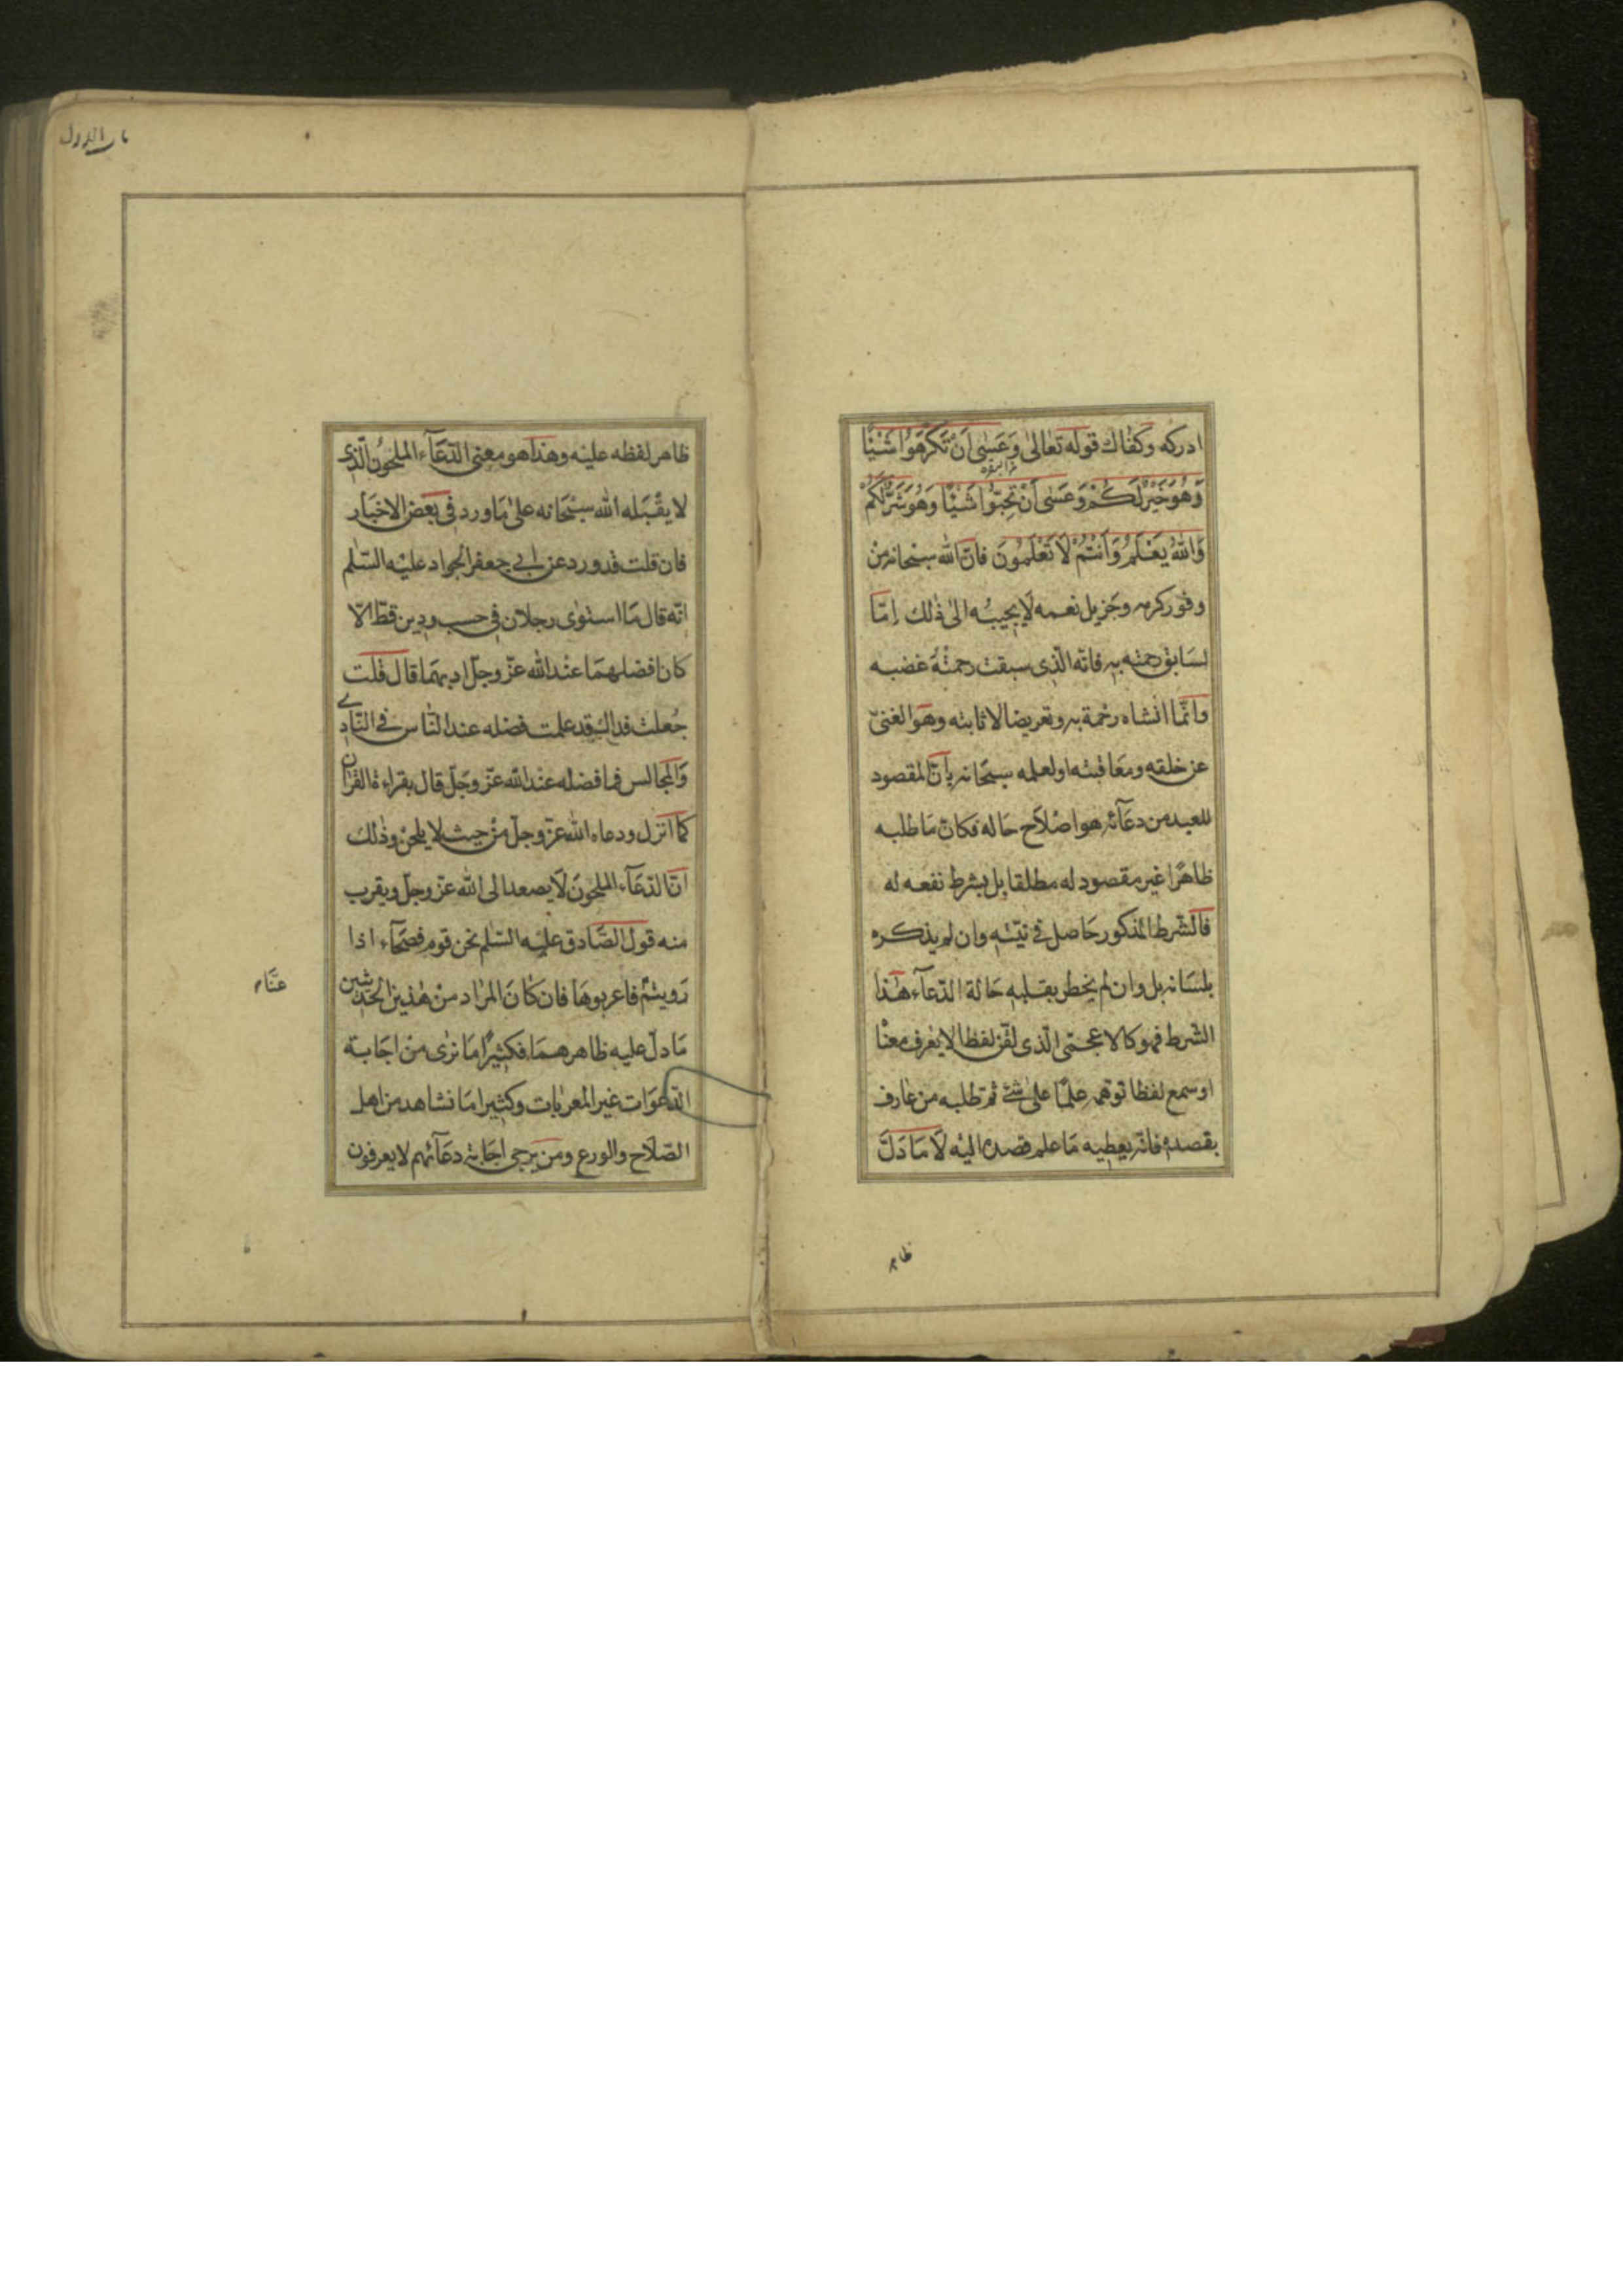 ادركه وكفاك قوله تعالى وَعَسٰى اَنْ تَكْرَهُوا شَيْئًا
وَهُوَ خَيْرٌ لَكُمْ وَعَسٰى اَنْ تُحِبُّوا شَيْئًا وَهُوَ شَرٌّ لَكُمْ
وَاللّٰهُ يَعْلَمُ وَاَنْتُمْ لَا تَعْلَمُونَ فانّ الله سبحانه من
وفور كرمه وجزيل نعمه لا يجيبه الى ذلك امّا
لسابق رحمته به فانّه الّذى سبقت رحمته غضبه
وانّما انشاه رحمة به وتعريضا لاثابته وهو الغنىّ
عن خلقه ومعاقبته او لعلمه سبحانه بانّ المقصود
للعبد من دعآئه هو اصلاح حاله فكان ما طلبه
ظاهرًا غير مقصود له مطلقا بل بشرط نفعه له
فالشّرط المذكور حاصل فى نيّته وان لم يذكره
بلسانه بل وان لم يخطر بقلبه حالة الدّعآء هذا
الشّرط فهو كالاعجمى الّذى لقّن لفظا لا يعرف معناه
او سمع لفظا توهمه علمًا على شئ ثم تطلبه من عارف
بقصده فانّه يعطيه ما علم قصده اليه لا ما دَلّ
ظاهر
ظاهر لفظه عليه وهذا هو معنى الدّعآء الملحون الّذى
لا يقبله الله سبحانه على ما ورد فى بعض الاخبار
فان قلت قد ورد عن ابى جعفر الجواد عليه السّلم
انّه قال ما استوى رجلان فى حسب ودين قطّ الّا
كان افضلهما عند الله عزّ وجلّ ادبهما قال قلت
جُعلت فداك قد علمت فضله عند النّاس فى النّادى
والمجالس فما فضله عند الله عزّ وجلّ قال بقراءة القران
كما انزل ودعاه الله عزّ وجلّ من حيث لا يلحن وذلك
انّ الدّعآء الملحون لا يصعد الى الله عزّ وجلّ ويقرب
منه قول الصّادق عليه السّلم نحن قوم فصحآء اذا
رويتم عنّا
فاعربوها فان كان المراد من هذين الحديثين
ما دلّ عليه ظاهرهما فكثيرًا ما نرى من اجابة
الدّعوات غير المعربات وكثيرا ما نشاهد من اهل
الصّلاح والورع ومن يرجى اجابة دعآئهم لا يعرفون